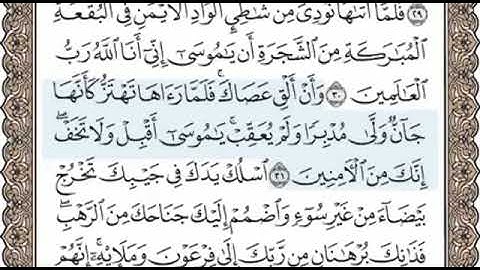 ٢٩ فَلَمَّآ أَتَىٰهَا نُودِىَ مِن شَٰطِئِ ٱلْوَادِ ٱلْأَيْمَنِ فِى ٱلْبُقْعَةِ
ٱلْمُبَٰرَكَةِ مِنَ ٱلشَّجَرَةِ أَن يَٰمُوسَىٰٓ إِنِّىٓ أَنَا ٱللَّهُ رَبُّ
ٱلْعَٰلَمِينَ ٣٠ وَأَنْ أَلْقِ عَصَاكَ ۖ فَلَمَّا رَءَاهَا تَهْتَزُّ كَأَنَّهَا
جَآنٌّ وَلَّىٰ مُدْبِرًا وَلَمْ يُعَقِّبْ ۚ يَٰمُوسَىٰٓ أَقْبِلْ وَلَا تَخَفْ ۖ
إِنَّكَ مِنَ ٱلْءَامِنِينَ ٣١ ٱسْلُكْ يَدَكَ فِى جَيْبِكَ تَخْرُجْ
بَيْضَآءَ مِنْ غَيْرِ سُوٓءٍ وَٱضْمُمْ إِلَيْكَ جَنَاحَكَ مِنَ ٱلرَّهْبِ ۖ
فَذَٰنِكَ بُرْهَٰنَانِ مِن رَّبِّكَ إِلَىٰ فِرْعَوْنَ وَمَلَإِي۟هِۦٓ ۚ إِنَّهُمْ